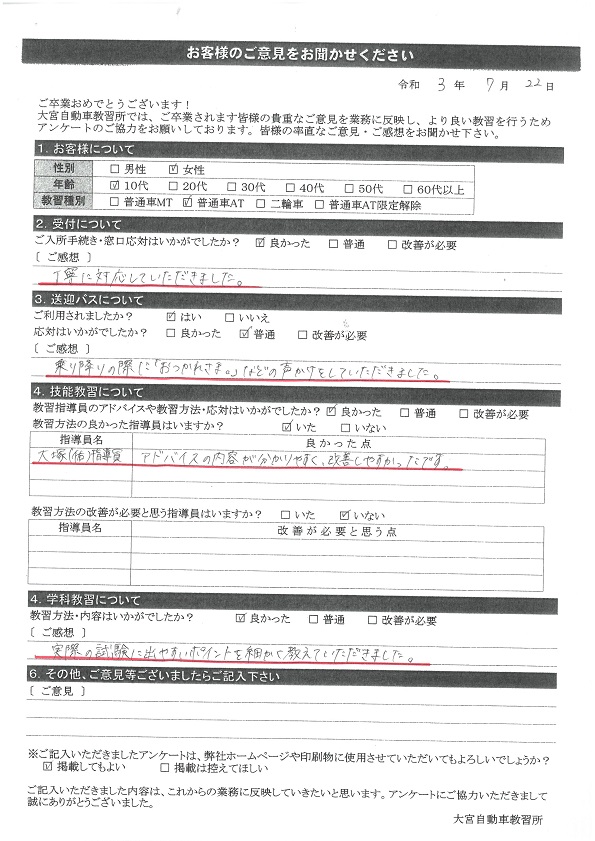 お客様のご意見をお聞かせください
令和 3 年 7 月 22 日
ご卒業おめでとうございます！
大宮自動車教習所では、ご卒業されます皆様の貴重なご意見を業務に反映し、より良い教習を行うため
アンケートのご協力をお願いしております。皆様の率直なご意見・ご感想をお聞かせ下さい。
1. お客様について
性別 □ 男性 ☑ 女性
年齢 ☑ 10代 □ 20代 □ 30代 □ 40代 □ 50代 □ 60代以上
教習種別 □ 普通車MT ☑ 普通車AT □ 二輪車 □ 普通車AT限定解除
2. 受付について
ご入所手続き・窓口応対はいかがでしたか？ ☑ 良かった □ 普通 □ 改善が必要
〔 ご感想 〕
丁寧に対応していただきました。
3. 送迎バスについて
ご利用されましたか？ ☑ はい □ いいえ
応対はいかがでしたか？ □ 良かった ☑ 普通 □ 改善が必要
〔 ご感想 〕
乗り降りの際に「おつかれさま。」などの声かけをしていただきました。
4. 技能教習について
教習指導員のアドバイスや教習方法・応対はいかがでしたか？ ☑ 良かった □ 普通 □ 改善が必要
教習方法の良かった指導員はいますか？ ☑ いた □ いない
指導員名 良かった点
大塚(佑)指導員 アドバイスの内容が分かりやすく、改善しやすかったです。
教習方法の改善が必要と思う指導員はいますか？ □ いた ☑ いない
指導員名 改善が必要と思う点
4. 学科教習について
教習方法・内容はいかがでしたか？ ☑ 良かった □ 普通 □ 改善が必要
〔 ご感想 〕
実際の試験に出やすいポイントを細かく教えていただきました。
6. その他、ご意見等ございましたらご記入下さい
〔 ご意見 〕
※ご記入いただきましたアンケートは、弊社ホームページや印刷物に使用させていただいてもよろしいでしょうか？
☑ 掲載してもよい □ 掲載は控えてほしい
ご記入いただきました内容は、これからの業務に反映していきたいと思います。アンケートにご協力いただきまして
誠にありがとうございました。
大宮自動車教習所